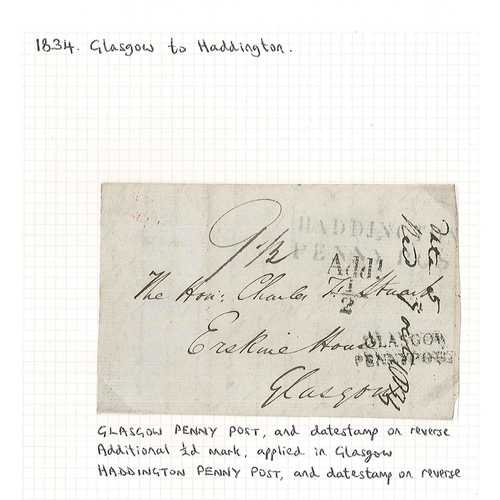 1834. Glasgow to Haddington.
HADDING
PENNY POS
9 1/2
Addl
1/2
The Hon: Charles F. Stuart
Erskine House
GLASGOW
PENNY POST
Glasgow
GLASGOW PENNY POST, and datestamp on reverse
Additional ½d mark, applied in Glasgow
HADDINGTON PENNY POST, and datestamp on reverse